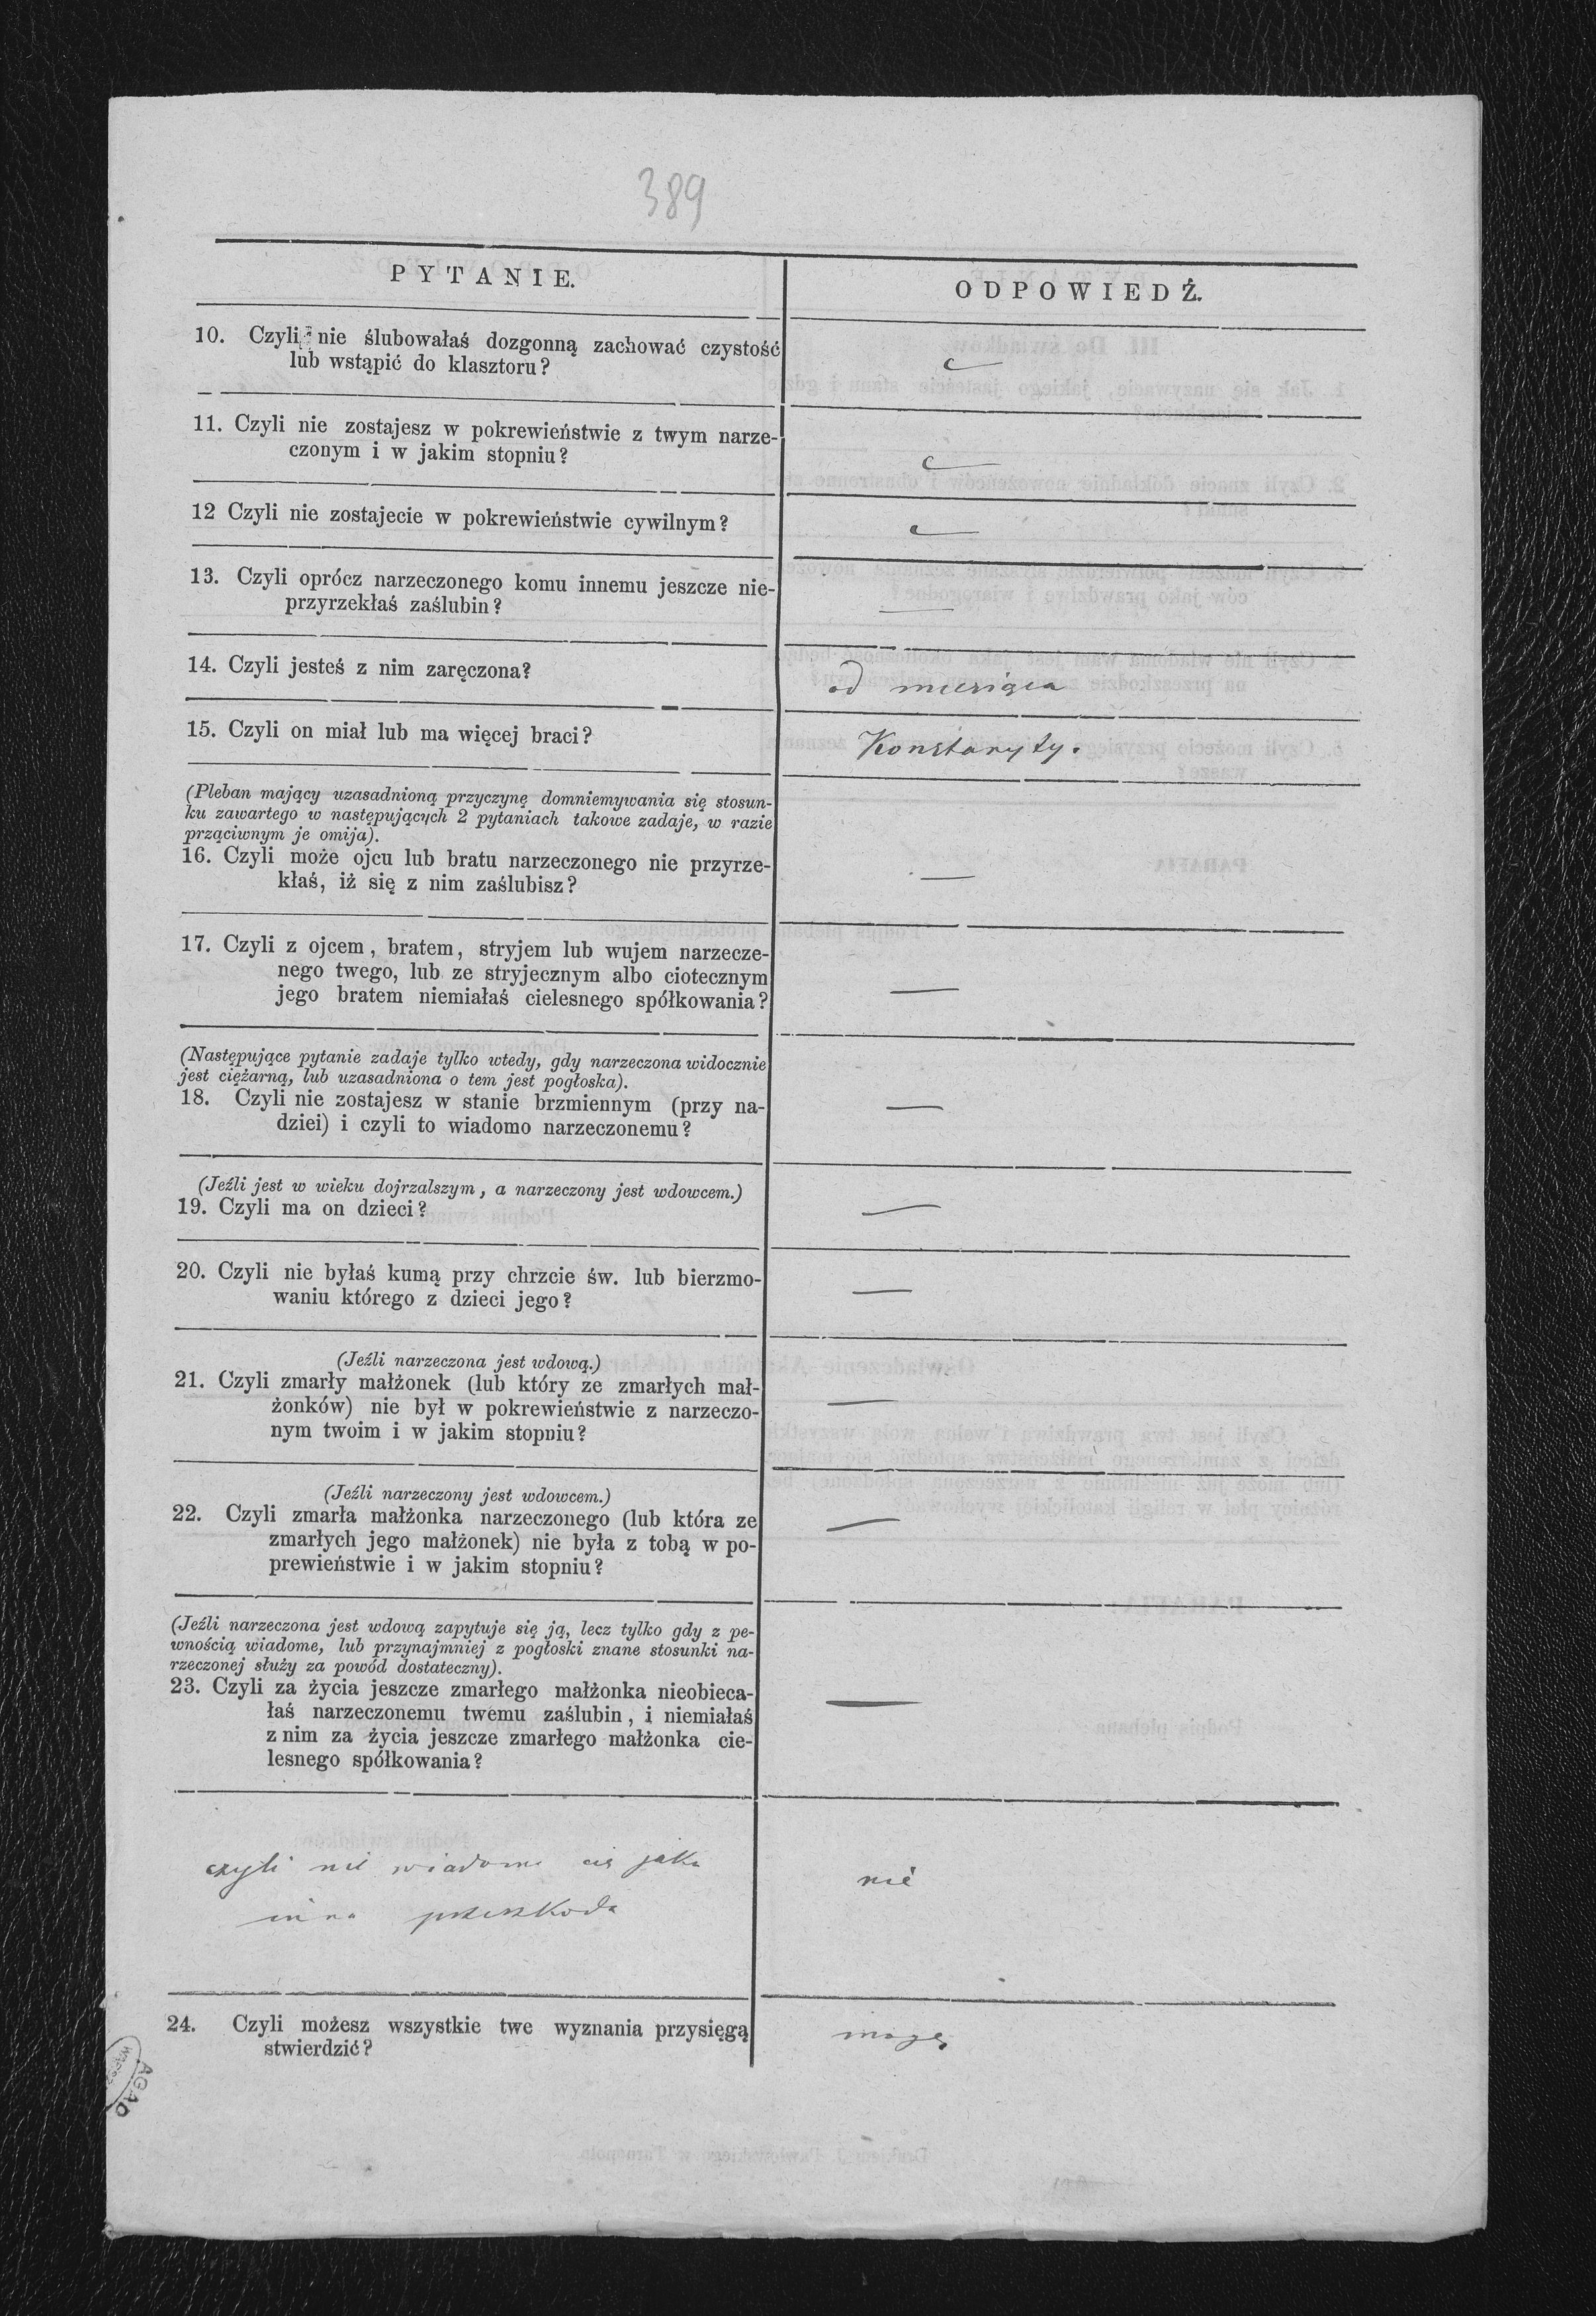 389
PYTANIE.
ODPOWIEDŹ.
10. Czyli nie ślubowałaś dozgonną zachować czystość
lub wstąpić do klasztoru?
11. Czyli nie zostajesz w pokrewieństwie z twym narze-
czonym i w jakim stopniu?
12 Czyli nie zostajecie w pokrewieństwie cywilnym?
13. Czyli oprócz narzeczonego komu innemu jeszcze nie-
przyrzekłaś zaślubin?
—
14. Czyli jesteś z nim zaręczona?
od miesiąca
15. Czyli on miał lub ma więcej braci?
(Pleban mający uzasadnioną przyczynę domniemywania się stosun-
ku zawartego w następujących 2 pytaniach takowe zadaje, w razie
prząciwnym je omija).
16. Czyli może ojcu lub bratu narzeczonego nie przyrze-
kłaś, iż się z nim zaślubisz?
—
17. Czyli z ojcem, bratem, stryjem lub wujem narzecze-
nego twego, lub ze stryjecznym albo ciotecznym
jego bratem niemiałaś cielesnego spółkowania?
—
(Następujące pytanie zadaje tylko wtedy, gdy narzeczona widocznie
jest ciężarną, lub uzasadniona o tem jest pogłoska).
18. Czyli nie zostajesz w stanie brzmiennym (przy na-
dziei) i czyli to wiadomo narzeczonemu?
—
(Jeźli jest w wieku dojrzalszym, a narzeczony jest wdowcem.)
19. Czyli ma on dzieci?
—
20. Czyli nie byłaś kumą przy chrzcie św. lub bierzmo-
waniu którego z dzieci jego?
—
(Jeźli narzeczona jest wdową.)
21. Czyli zmarły małżonek (lub który ze zmarłych mał-
żonków) nie był w pokrewieństwie z narzeczo-
nym twoim i w jakim stopniu?
—
(Jeźli narzeczony jest wdowcem.)
22. Czyli zmarła małżonka narzeczonego (lub która ze
zmarłych jego małżonek) nie była z tobą w po-
prewieństwie i w jakim stopniu?
—
(Jeźli narzeczona jest wdową zapytuje się ją, lecz tylko gdy z pe-
wnością wiadome, lub przynajmniej z pogłoski znane stosunki na-
rzeczonej służy za powód dostateczny).
23. Czyli za życia jeszcze zmarłego małżonka nieobieca-
łaś narzeczonemu twemu zaślubin, i niemiałaś
z nim za życia jeszcze zmarłego małżonka cie-
lesnego spółkowania?
—
czyli nie wiadoma ci jaka
inna przeszkoda
nie
24. Czyli możesz wszystkie twe wyznania przysięgą
stwierdzić?
mogę
AGAD